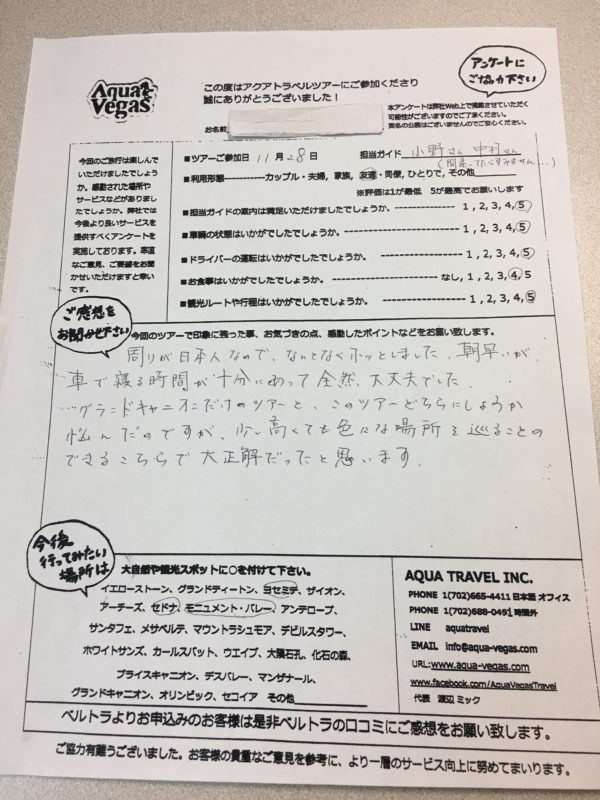 Aqua Vegas
この度はアクアトラベルツアーにご参加くださり
誠にありがとうございました！
アンケートに
ご協力下さい
本アンケートは弊社Web上で掲載させていただく
可能性がございますのでご了承ください。
実名の公表はございませんのでご安心ください。
お名前
今回のご旅行は楽しんで
いただけましたでしょう
か。感動された場所や
サービスなどがありまし
たでしょうか。弊社では
今後より良いサービスを
提供すべくアンケートを
実施しております。率直
なご意見、ご要望をお聞
かせいただけますと幸い
です。
■ツアーご参加日 11 月 28 日 担当ガイド 小野さん 中村さん
■利用形態----------カップル・夫婦, 家族, 友達・同僚, ひとりで, その他
※評価は1が最低 5が最高でお願いします
■担当ガイドの案内は満足いただけましたでしょうか。 1, 2, 3, 4, 5
■車輌の状態はいかがでしたでしょうか。 1, 2, 3, 4, 5
■ドライバーの運転はいかがでしたでしょうか。 1, 2, 3, 4, 5
■お食事はいかがでしたでしょうか。 なし, 1, 2, 3, 4, 5
■観光ルートや行程はいかがでしたでしょうか。 1, 2, 3, 4, 5
ご感想を
お聞かせ下さい
今回のツアーで印象に残った事、お気づきの点、感動したポイントなどをお願い致します。
周りが日本人なので、なんとなくホッとしました。朝早いが、
車で寝る時間が十分にあって全然、大丈夫でした。
グランドキャニオンだけのツアーと、このツアーどちらにしようか
悩んだのですが、少し高くても色々な場所を巡ることの
できるこちらで大正解だったと思います。
今後
行ってみたい
場所は
大自然や観光スポットに○を付けて下さい。
イエローストーン、グランドティートン、ヨセミテ、ザイオン、
アーチーズ、セドナ、モニュメント・バレー、アンテロープ、
サンタフェ、メサベルデ、マウントラシュモア、デビルスタワー、
ホワイトサンズ、カールスバット、ウエイブ、大隕石孔、化石の森、
ブライスキャニオン、デスバレー、マンザナール、
グランドキャニオン、オリンピック、セコイア その他
AQUA TRAVEL INC.
PHONE 1(702)665-4411 日本語 オフィス
PHONE 1(702)688-0491 時間外
LINE aquatravel
EMAIL info@aqua-vegas.com
URL:www.aqua-vegas.com
www.facebook.com/AquaVegasTravel
代表 渡辺 ミック
ベルトラよりお申込みのお客様は是非ベルトラの口コミにご感想をお願い致します。
ご協力有難うございました。お客様の貴重なご意見を参考に、より一層のサービス向上に努めてまいります。